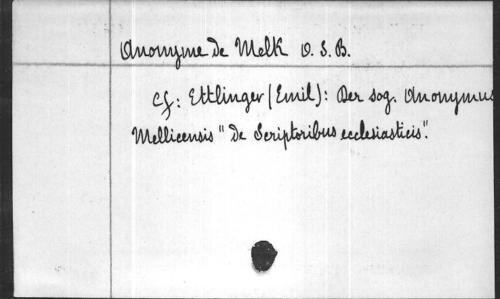 Anonyme de Melk O. S. B.
cf: Ettlinger (Emil): Der sog. Anonymus
Mellicensis "De Scriptoribus ecclesiasticis".